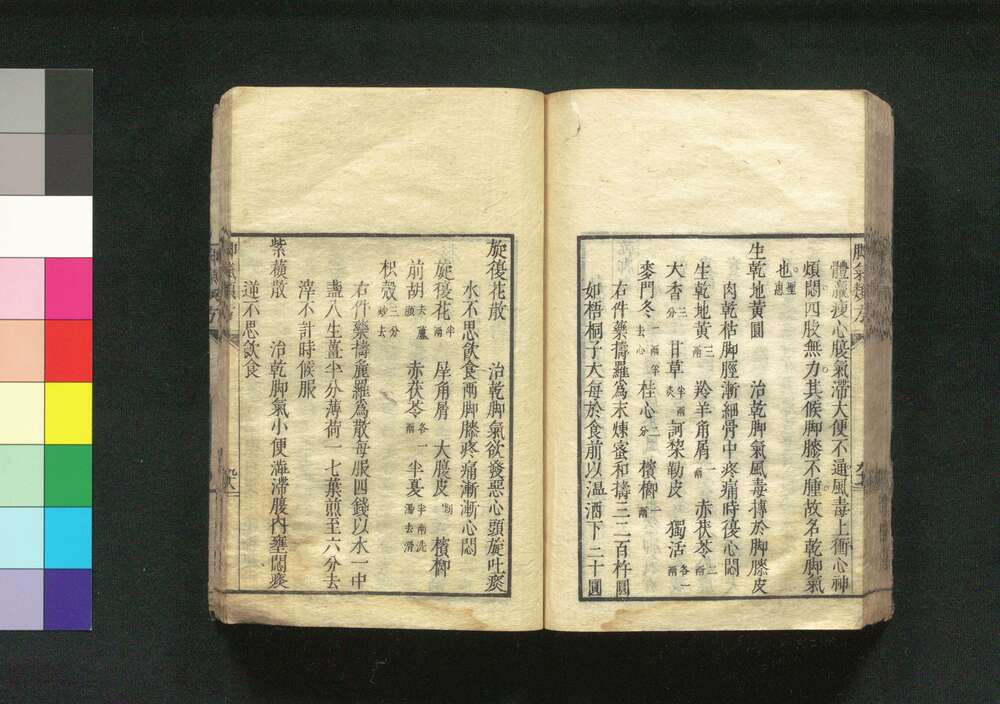 脚氣類方
體羸瘦心腹氣滯大便不通風毒上衝心神
煩悶四肢無力其候脚膝不腫故名乾脚氣
也聖惠
生乾地黃圓 治乾脚氣風毒搏於脚膝皮
肉乾枯脚脛漸細骨中疼痛時復心悶
生乾地黃三兩 羚羊角屑一兩 赤茯苓二兩
木香三分 甘草半兩炙 訶棃勒皮 獨活各一兩
麥門冬一兩半去心 桂心二分 檳榔一兩
右件藥擣羅爲末煉蜜和擣三二百杵圓
如梧桐子大每於食前以温酒下二十圓
旋復花散 治乾脚氣欲發惡心頭旋吐痰
水不思飲食兩脚膝疼痛漸漸心悶
旋復花半兩 犀角屑 大腹皮剉 檳榔
前胡去蘆頭 赤茯苓各一兩 半夏半兩洗湯去滑
枳殼三分炒去
右件藥擣麄羅爲散每服四錢以水一中
盞入生薑半分薄荷一七葉煎至六分去
滓不計時候服
紫蘇散 治乾脚氣小便澁滯腹內壅悶痰
逆不思飲食